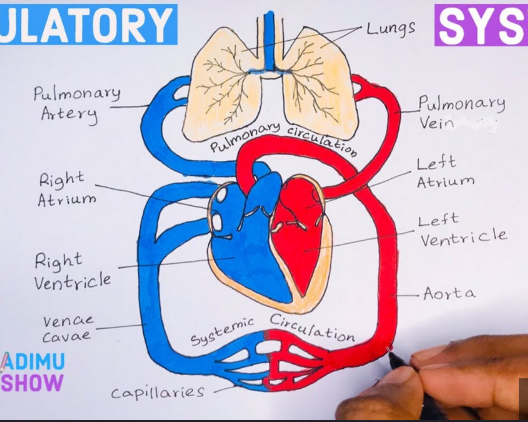 ULATORY
SYS
Lungs
Pulmonary
Artery
Pulmonary
Vein
Pulmonary circulation
Right
Atrium
Left
Atrium
Left
Ventricle
Right
Ventricle
Aorta
venae
cavae
Systemic Circulation
Capillaries
ADIMU
SHOW